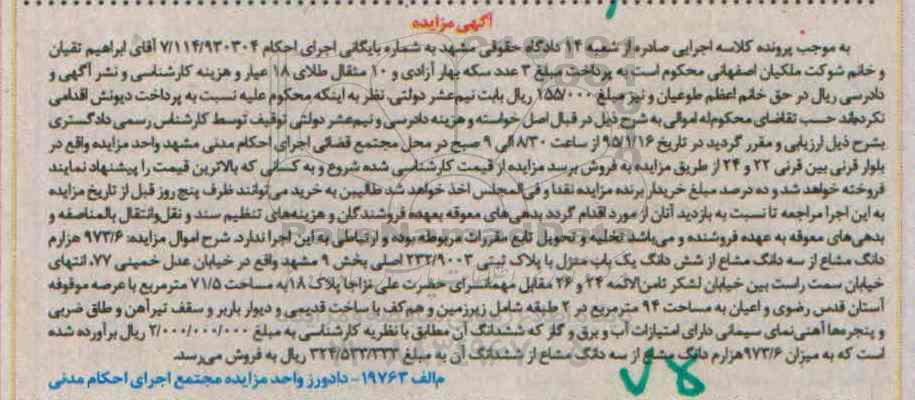 آگهی مزایده
به موجب پرونده کلاسه اجرایی صادره از شعبه ۱۴ دادگاه حقوقی مشهد به شماره بایگانی اجرای احکام ۷/۱۱۴/۹۳۰۳۰۴ آقای ابراهیم تقیان
و خانم شوکت ملکیان اصفهانی محکوم است به پرداخت مبلغ ۳ عدد سکه بهار آزادی و ۱۰ مثقال طلای ۱۸ عیار و هزینه کارشناسی و نشر آگهی و
دادرسی ریال در حق خانم اعظم طوعیان و نیز مبلغ ۱۵۵/۰۰۰ ریال بابت نیم‌عشر دولتی. نظر به اینکه محکوم علیه نسبت به پرداخت دیونش اقدامی
نکرده‌اند حسب تقاضای محکوم‌له اموالی به شرح ذیل در قبال اصل خواسته و هزینه دادرسی و نیم‌عشر دولتی توقیف توسط کارشناس رسمی دادگستری
بشرح ذیل ارزیابی و مقرر گردید در تاریخ ۹۵/۱/۱۶ از ساعت ۸/۳۰ الی ۹ صبح در محل مجتمع قضائی اجرای احکام مدنی مشهد واحد مزایده واقع در
بلوار قرنی بین قرنی ۲۲ و ۲۴ از طریق مزایده به فروش برسد مزایده از قیمت کارشناسی شده شروع و به کسانی که بالاترین قیمت را پیشنهاد نمایند
فروخته خواهد شد و ده درصد مبلغ خریدار برنده مزایده نقدا و فی‌المجلس اخذ خواهد شد طالبین به خرید می‌توانند ظرف پنج روز قبل از تاریخ مزایده
به این اجرا مراجعه تا نسبت به بازدید آنان از مورد اقدام گردد بدهی‌های معوقه بعهده فروشندگان و هزینه‌های تنظیم سند و نقل‌وانتقال بالمناصفه و
بدهی‌های معوقه به عهده فروشنده و می‌باشد تخلیه و تحویل تابع مقررات مربوطه بوده و ارتباطی به این اجرا ندارد. شرح اموال مزایده: ۹۷۳/۶ هزارم
دانگ مشاع از سه دانگ مشاع از شش دانگ یک باب منزل با پلاک ثبتی ۲۳۲/۹۰۰۳ اصلی بخش ۹ مشهد واقع در خیابان عدل خمینی ۷۷، انتهای
خیابان سمت راست بین خیابان لشکر ثامن‌الائمه ۲۴ و ۲۶ مقابل مهمانسرای حضرت علی نزاجا پلاک ۱۸ به مساحت ۷۱/۵ مترمربع با عرصه موقوفه
آستان قدس رضوی و اعیان به مساحت ۹۴ مترمربع در ۲ طبقه شامل زیرزمین و هم‌کف با ساخت قدیمی و دیوار باربر و سقف تیرآهن و طاق ضربی
و پنجره‌ها آهنی نمای سیمانی دارای امتیازات آب و برق و گاز که ششدانگ آن مطابق با نظریه کارشناسی به مبلغ ۲/۰۰۰/۰۰۰/۰۰۰ ریال برآورده شده
است که به میزان ۹۷۳/۶ هزارم دانگ مشاع از سه دانگ مشاع از ششدانگ آن به مبلغ ۳۲۴/۵۳۳/۳۳۳ ریال به فروش می‌رسد.
م‌الف ۱۹۷۶۳ - دادورز واحد مزایده مجتمع اجرای احکام مدنی